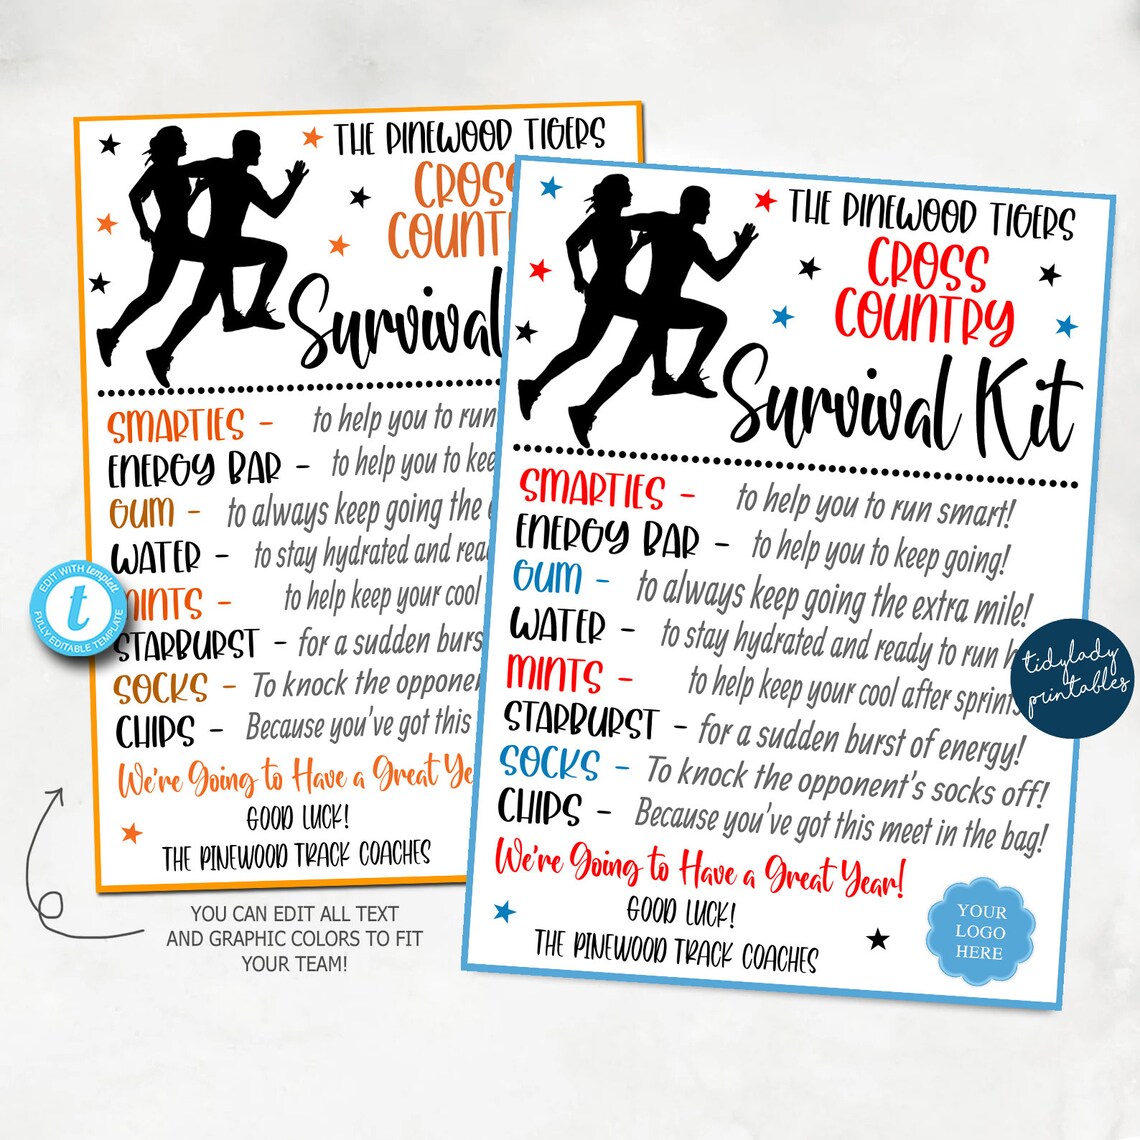 THE PINEWOOD TIGERS
CROSS
COUNT
Survival
SMARTIES - to help you to run
ENERGY BAR - to help you to kee
GUM - to always keep going the
WATER - to stay hydrated and rea
MINTS - to help keep your cool
STARBURST - for a sudden burs
SOCKS - To knock the opponen
CHIPS - Because you've got this
We're Going to Have a Great Ye
GOOD LUCK!
THE PINEWOOD TRACK COACHES
EDIT WITH templett
t
FULLY EDITABLE TEMPLATE
YOU CAN EDIT ALL TEXT
AND GRAPHIC COLORS TO FIT
YOUR TEAM!
THE PINEWOOD TIGERS
CROSS
COUNTRY
Survival Kit
SMARTIES - to help you to run smart!
ENERGY BAR - to help you to keep going!
GUM - to always keep going the extra mile!
WATER - to stay hydrated and ready to run h
MINTS - to help keep your cool after sprints
STARBURST - for a sudden burst of energy!
SOCKS - To knock the opponent's socks off!
CHIPS - Because you've got this meet in the bag!
We're Going to Have a Great Year!
GOOD LUCK!
THE PINEWOOD TRACK COACHES
YOUR
LOGO
HERE
tidylady
printables